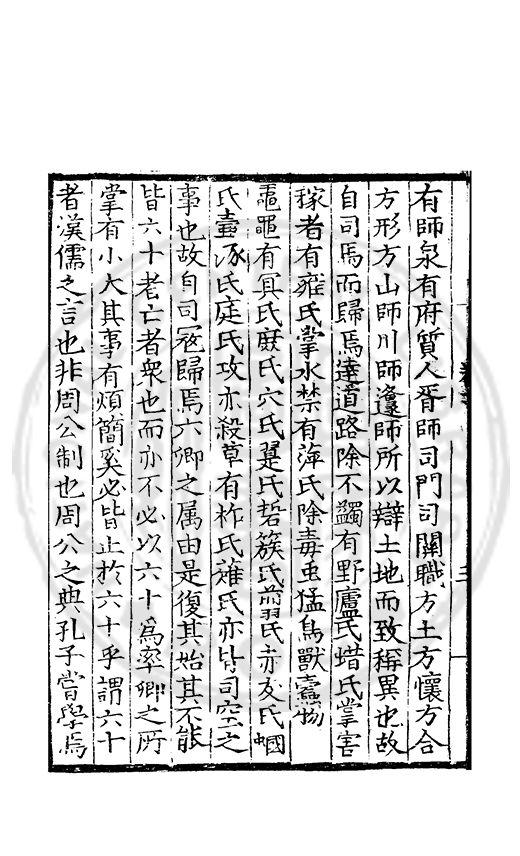 有師泉有府質人胥師司門司關職方土方懷方合
方形方山師川師邍師所以辯土地而致稱異也故
自司馬而歸焉達道路除不蠲有野廬氏蜡氏掌害
稼者有雍氏掌水禁有萍氏除毒虫猛鳥獸蠹物
鼃黽有冥氏庶氏穴氏翨氏硩蔟氏翦氏赤犮氏蟈
氏壺涿氏庭氏攻亦殺草有柞氏薙氏亦皆司空之
事也故自司冦歸焉六卿之属由是復其始其不能
皆六十者亡者衆也而亦不必以六十爲率卿之所
掌有小大其事有煩簡奚必皆止於六十乎謂六十
者漢儒之言也非周公制也周公之典孔子嘗學焉
三